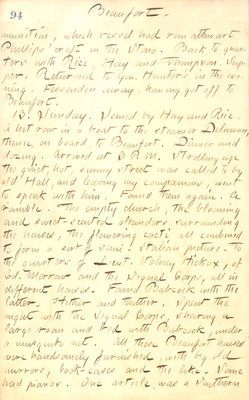 94
Beaufort.
munition, which vessel had run athwart
Phillips' craft in the Stono. Back to quar-
ters with Rice, Hay and Thompson. Sup-
per. Returned to Gen. Hunter's in the eve-
ning. Fessenden away, having got off to
Beaufort.
13. Sunday. Joined by Hay and Rice.
A hot row in a boat to the steamer Delaware,
thence, on board to Beaufort. Dinner and
dozing. Arrived at 3 P.M. Strolling up
the quiet, hot, sunny street was called to by
old Hall, and leaving my companions, went
to speak with him. Found them again. A
ramble. The empty church, the blooming
and sweet scented oleanders surrounding
the houses, the flowering cacti all combined
to form a sort of semi-Italian picture. To
the quarters of Lieut. Volney Hickox, of
Ed. Morrow and the Signal Corps, all in
different houses. Found Babcock with the
latter. Hither and thither. Spent the
night with the Signal Corps, sharing a
large room and bed with Babcock, under
a musquito net. All these Beaufort houses
were handsomely furnished, with big old
mirrors, book-cases and the like. Some
had pianos. One article was a Southern